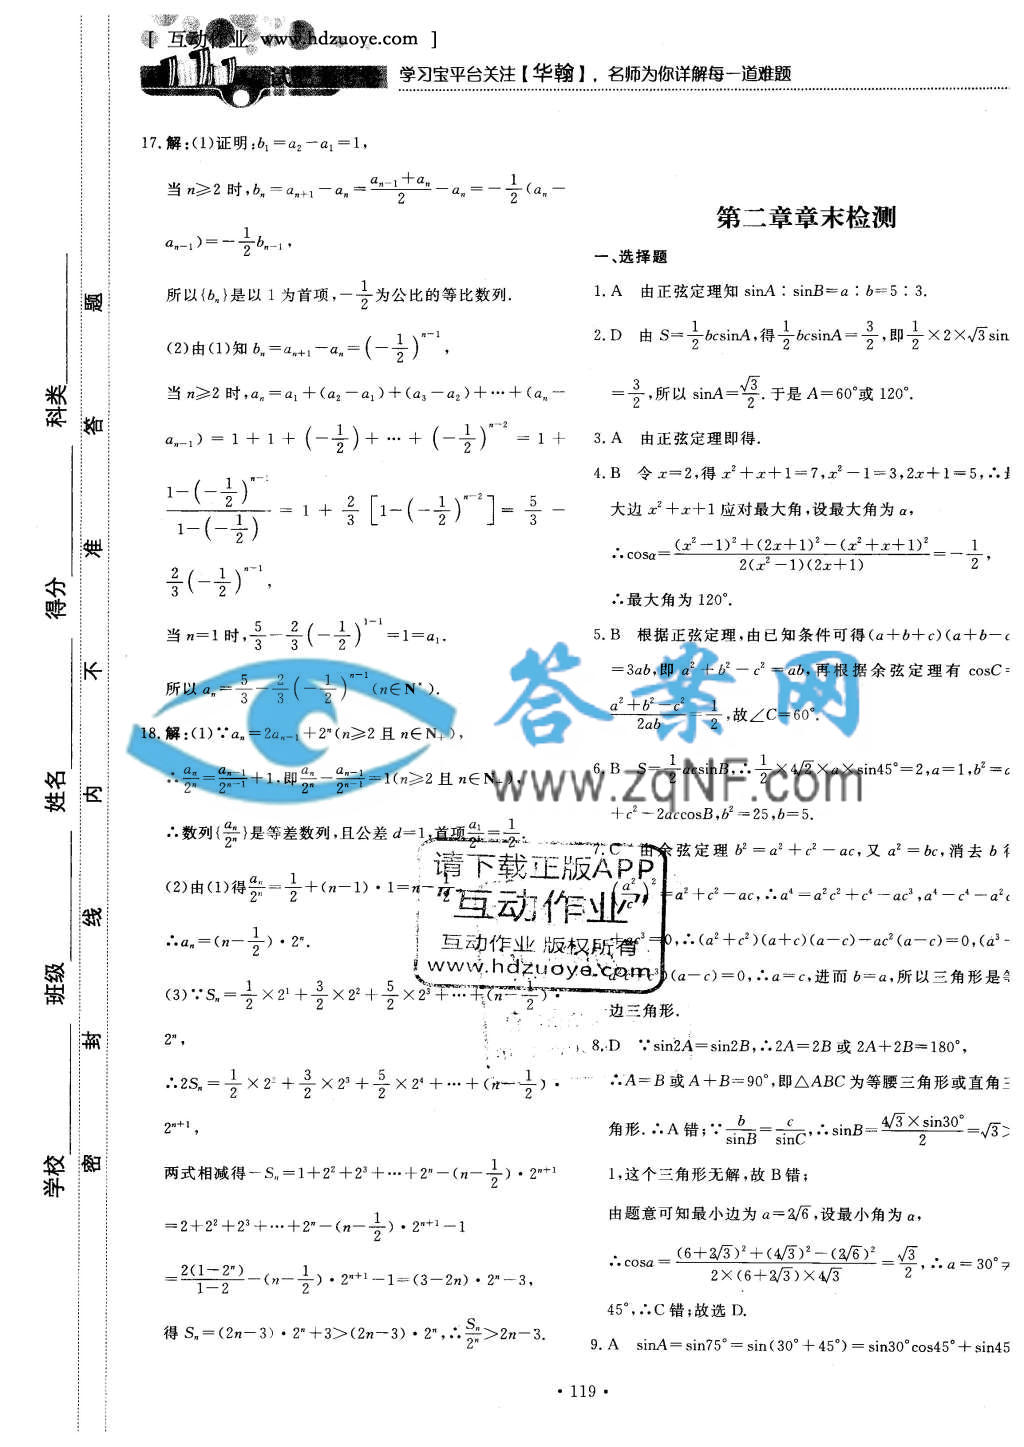 [ 互动作业 www.hdzuoye.com ]
学习宝平台关注【华翰】，名师为你详解每一道难题
17.解:(1)证明:b₁=a₂-a₁=1,
当 n≥2 时,bₙ=aₙ₊₁-aₙ=(aₙ₋₁+aₙ)/2-aₙ=-1/2(aₙ-
aₙ₋₁)=-1/2bₙ₋₁,
所以{bₙ}是以 1 为首项,-1/2为公比的等比数列.
(2)由(1)知 bₙ=aₙ₊₁-aₙ=(-1/2)ⁿ⁻¹,
当 n≥2 时,aₙ=a₁+(a₂-a₁)+(a₃-a₂)+⋯+(aₙ-
aₙ₋₁)=1+1+(-1/2)+⋯+(-1/2)ⁿ⁻²=1+
[1-(-1/2)ⁿ⁻¹]/[1-(-1/2)]=1+2/3[1-(-1/2)ⁿ⁻²]=5/3-
2/3(-1/2)ⁿ⁻¹,
当 n=1 时,5/3-2/3(-1/2)¹⁻¹=1=a₁.
所以 aₙ=5/3-2/3(-1/2)ⁿ⁻¹(n∈N*).
18.解:(1)∵aₙ=2aₙ₋₁+2ⁿ(n≥2 且 n∈N₊),
∴aₙ/2ⁿ=aₙ₋₁/2ⁿ⁻¹+1,即aₙ/2ⁿ-aₙ₋₁/2ⁿ⁻¹=1(n≥2 且 n∈N₊),
∴数列{aₙ/2ⁿ}是等差数列,且公差 d=1,首项a₁/2¹=1/2.
(2)由(1)得aₙ/2ⁿ=1/2+(n-1)·1=n-1/2,
∴aₙ=(n-1/2)·2ⁿ.
(3)∵Sₙ=1/2×2¹+3/2×2²+5/2×2³+⋯+(n-1/2)·
2ⁿ,
∴2Sₙ=1/2×2²+3/2×2³+5/2×2⁴+⋯+(n-1/2)·
2ⁿ⁺¹,
两式相减得-Sₙ=1+2²+2³+⋯+2ⁿ-(n-1/2)·2ⁿ⁺¹
=2+2²+2³+⋯+2ⁿ-(n-1/2)·2ⁿ⁺¹-1
=2(1-2ⁿ)/(1-2)-(n-1/2)·2ⁿ⁺¹-1=(3-2n)·2ⁿ-3,
得 Sₙ=(2n-3)·2ⁿ+3>(2n-3)·2ⁿ,∴Sₙ/2ⁿ>2n-3.
第二章章末检测
一、选择题
1. A 由正弦定理知 sinA∶sinB=a∶b=5∶3.
2. D 由 S=1/2bcsinA,得1/2bcsinA=3/2,即1/2×2×√3sin
=3/2,所以 sinA=√3/2.于是 A=60°或 120°.
3. A 由正弦定理即得.
4. B 令 x=2,得 x²+x+1=7,x²-1=3,2x+1=5,∴
大边 x²+x+1 应对最大角,设最大角为 α,
∴cosα=[(x²-1)²+(2x+1)²-(x²+x+1)²]/[2(x²-1)(2x+1)]=-1/2,
∴最大角为 120°.
5. B 根据正弦定理,由已知条件可得(a+b+c)(a+b-c
=3ab,即 a²+b²-c²=ab,再根据余弦定理有 cosC=
(a²+b²-c²)/2ab=1/2,故∠C=60°.
6. B S=1/2acsinB,∴1/2×4√2×a×sin45°=2,a=1,b²=
+c²-2accosB,b²=25,b=5.
7. C 由余弦定理 b²=a²+c²-ac,又 a²=bc,消去 b
(a²/c)²=a²+c²-ac,∴a⁴=a²c²+c⁴-ac³,a⁴-c⁴-a²
+ac³=0,∴(a²+c²)(a+c)(a-c)-ac²(a-c)=0,(a³
(a-c)=0,∴a=c,进而 b=a,所以三角形是
边三角形.
8. D ∵sin2A=sin2B,∴2A=2B 或 2A+2B=180°,
∴A=B 或 A+B=90°,即△ABC 为等腰三角形或直角
角形.∴A 错;∵b/sinB=c/sinC,∴sinB=4√3×sin30°/2=√3>
1,这个三角形无解,故 B 错;
由题意可知最小边为 a=2√6,设最小角为 α,
∴cosα=[(6+2√3)²+(4√3)²-(2√6)²]/[2×(6+2√3)×4√3]=√3/2,∴α=30°≠
45°,∴C 错;故选 D.
9. A sinA=sin75°=sin(30°+45°)=sin30°cos45°+sin45
· 119 ·
学校 班级 姓名 得分 科类
密 封 线 内 不 准 答 题
答案网
www.zqNF.com
请下载正版APP
互动作业
互动作业 版权所有
www.hdzuoye.com